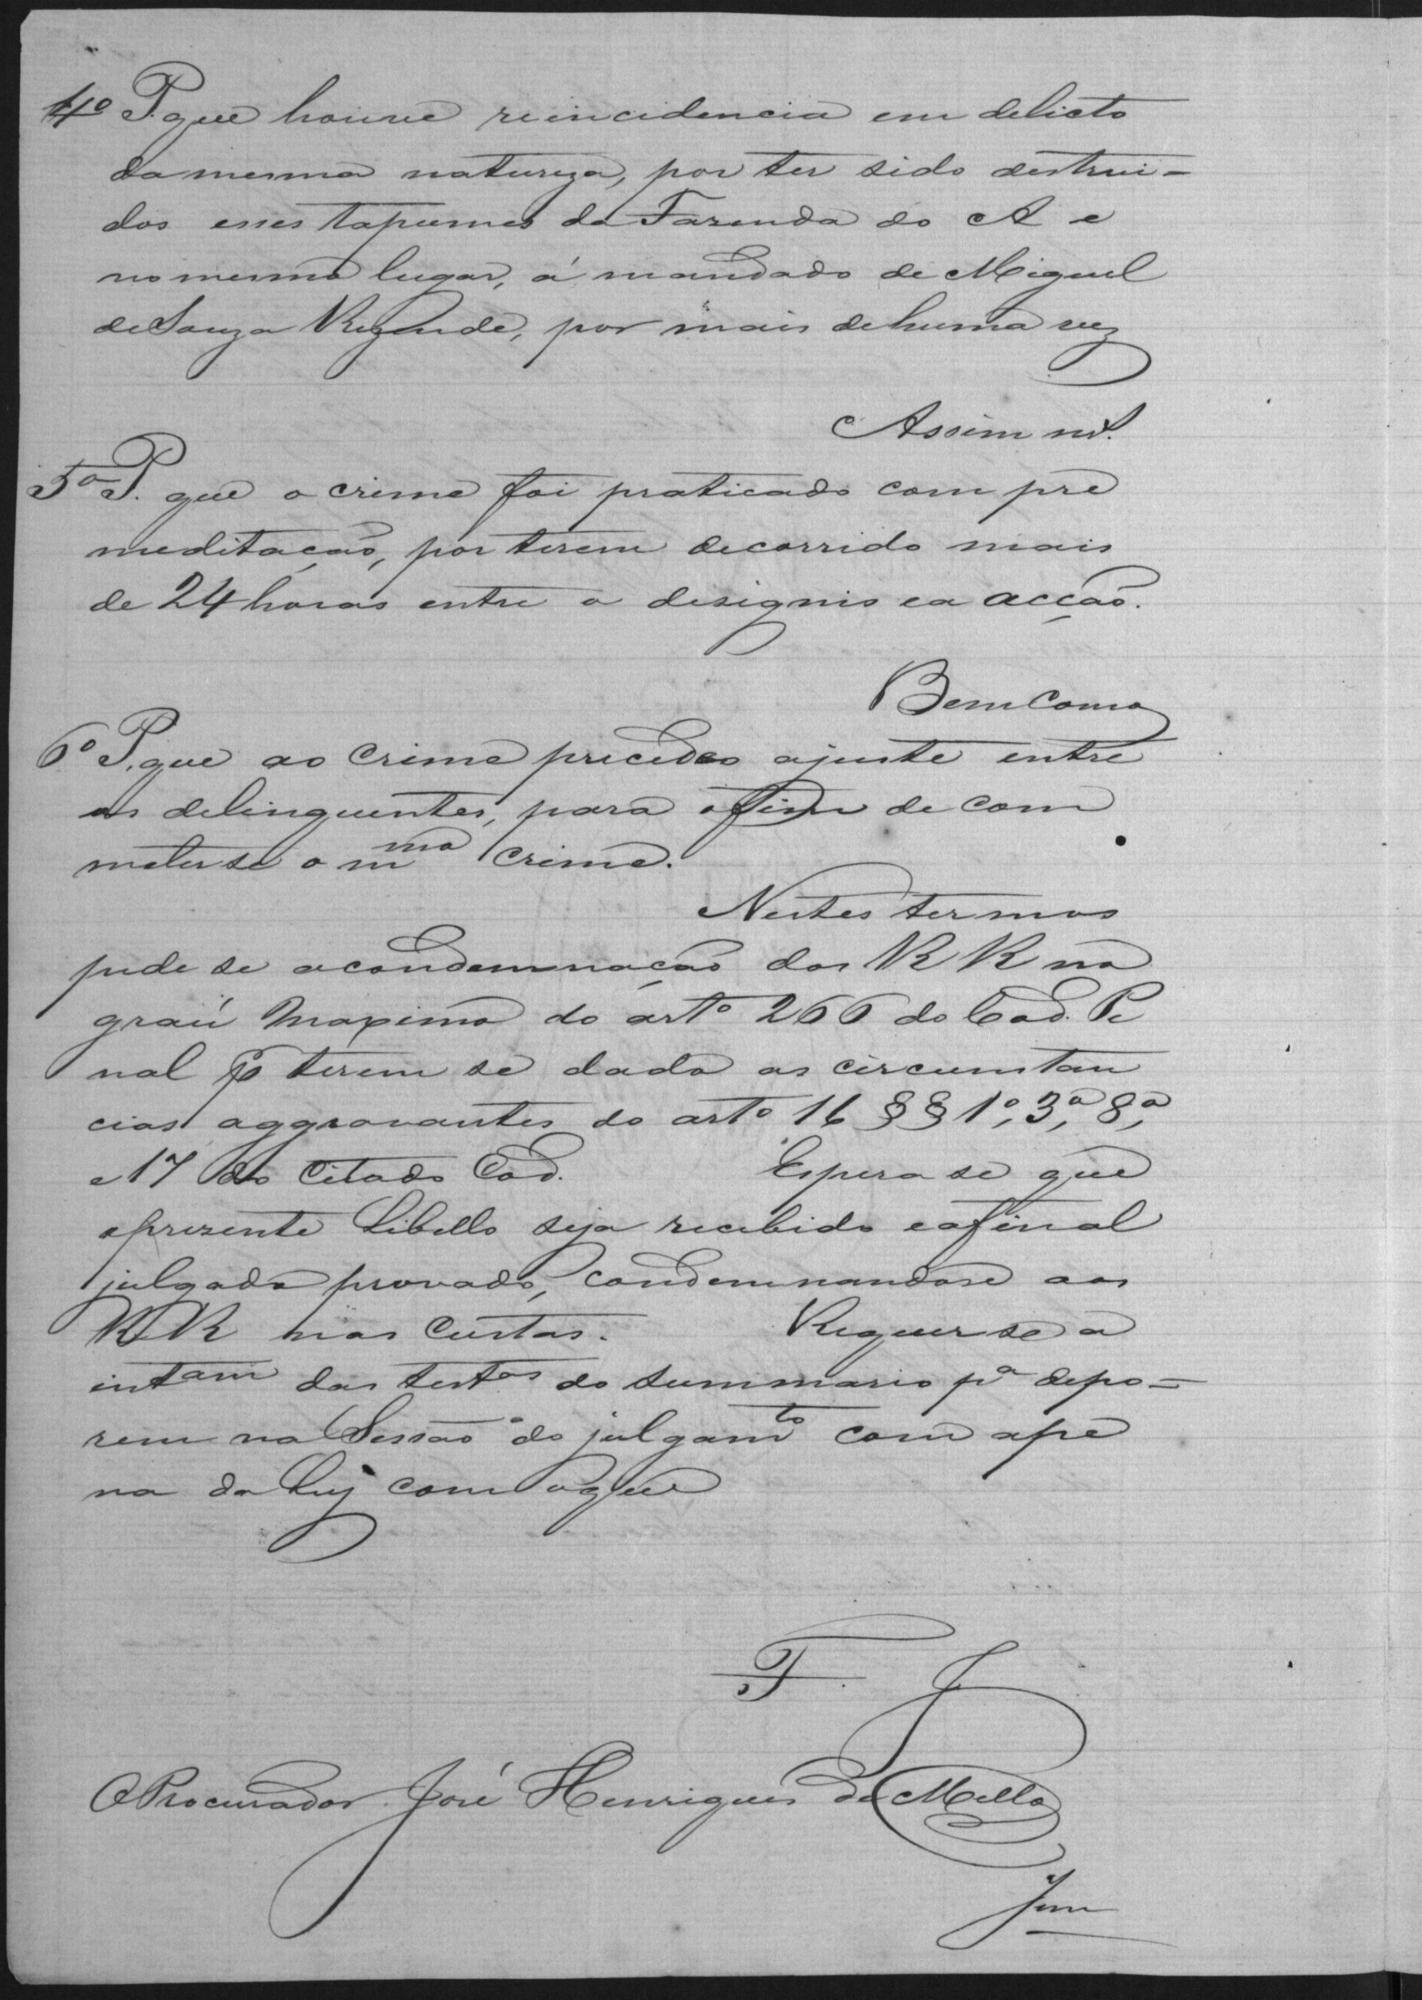 4º P. que houve reincidencia em delicto
da mesma natureza, por ter sido destrui-
dos esses tapumes da Fazenda do A e
no mesmo lugar, á mandado de Miguel
de Souza Rezende, por mais de huma vez
Assim
5º P. que o crime foi praticado com pre
meditação, por terem decorrido mais
de 24 horas entre o designio e a acção.
Bem como
6º P. que ao crime precedeo ajuste entre
os delinquentes, para o fim de com
meterse o mmo crime.
Nestes termos
pede se a condemnação dos RR no
graú maximo do artº 266 do Cod. Pe
nal p terem se dado as circumstan
cias aggravantes do artº 16 §§ 1º, 3º, 8º,
e 17 do Citado Cod. Espera se que
o prezente Libello seja recebido e afinal
julgado provado, condemnandose aos
RR nas Custas. Requer se a
intam das testas do summario pª depo-
rem na Sessão do julgamto com a pe
na da Ley com o que
F. J.
O Procurador José Henriques de Mello
Junr